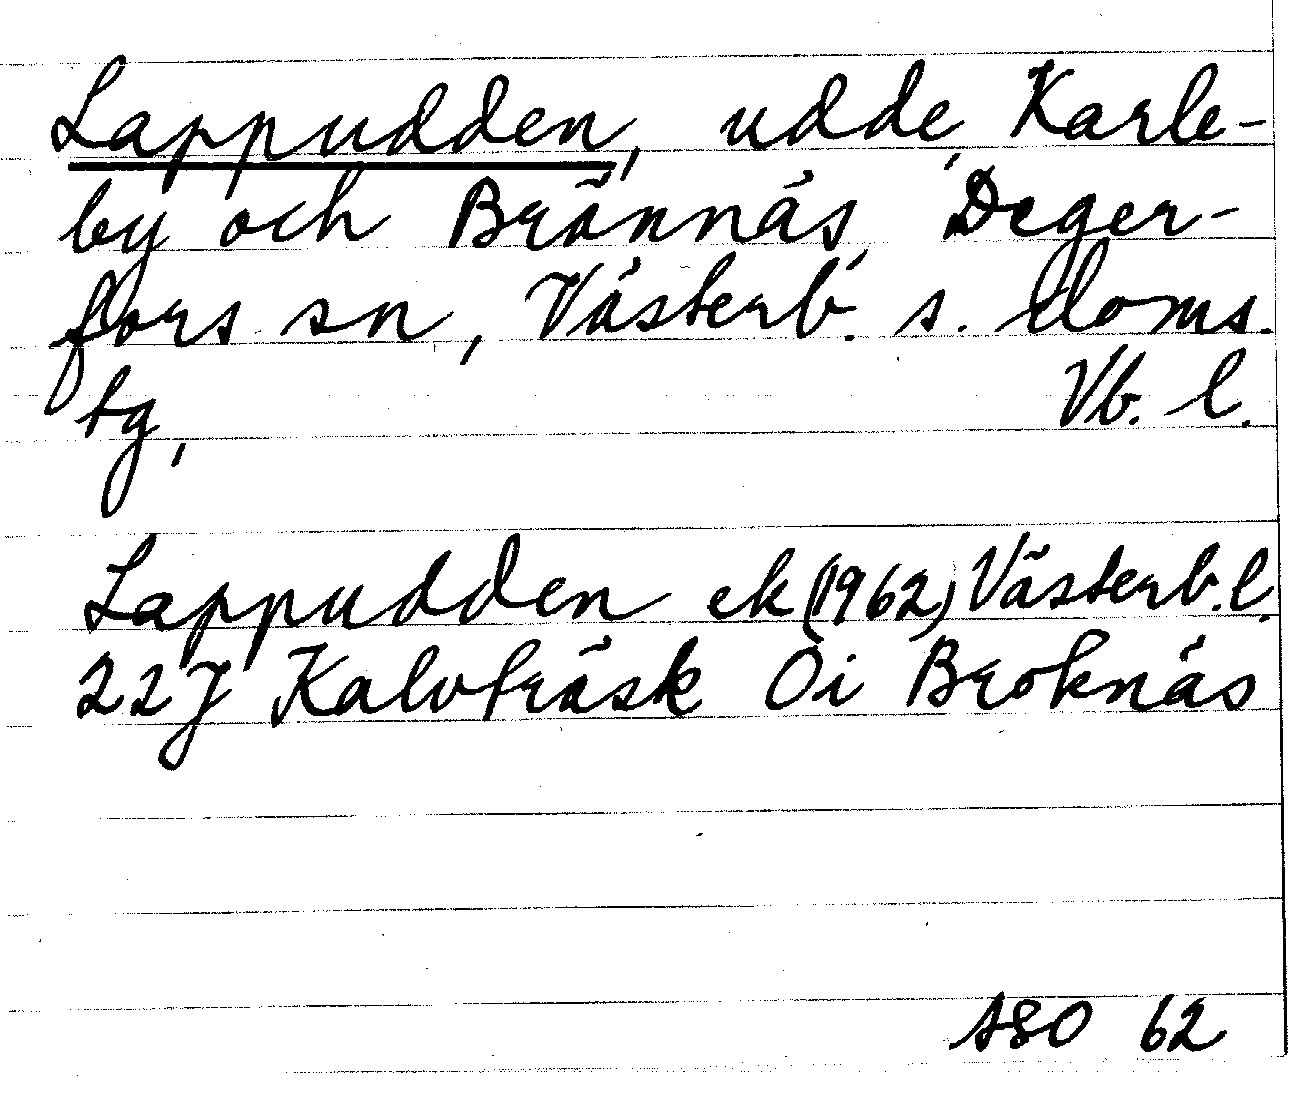 Lappudden, udde, Karle-
by och Brännäs, Deger-
fors sn, Västerb. s. doms.
tg,
Vb. l.
Lappudden ek (1962) Västerb. l.
22J Kalvträsk Öi Broknäs
ASO 62